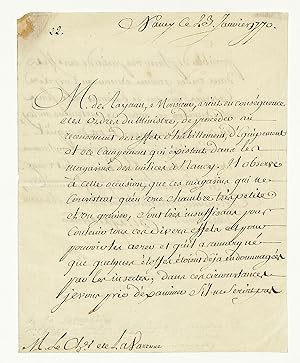 22. Nancy ce 23 Janvier 1770.
M. de Monsieur, a écrit en conséquence
des ordres du Ministre, de procéder au
recensement des effets d'habillement, d'équipement
et de Campement qui existent dans les
magasins des milices de Nancy. Il observe
à cette occasion, que ces magasins qui ne
Consistent qu'en une chambre très petite
et un grenier, sont très insuffisans pour
Contenir tous ces divers effets et pour
pouvoir les aerer et qu'il a remarqué
que quelques étoffes étoient déjà endommagées
par les insectes, dans ces circonstances
je vous prie d'examiner s'il ne seroit pas
M. Le Ch.er de La Varenne